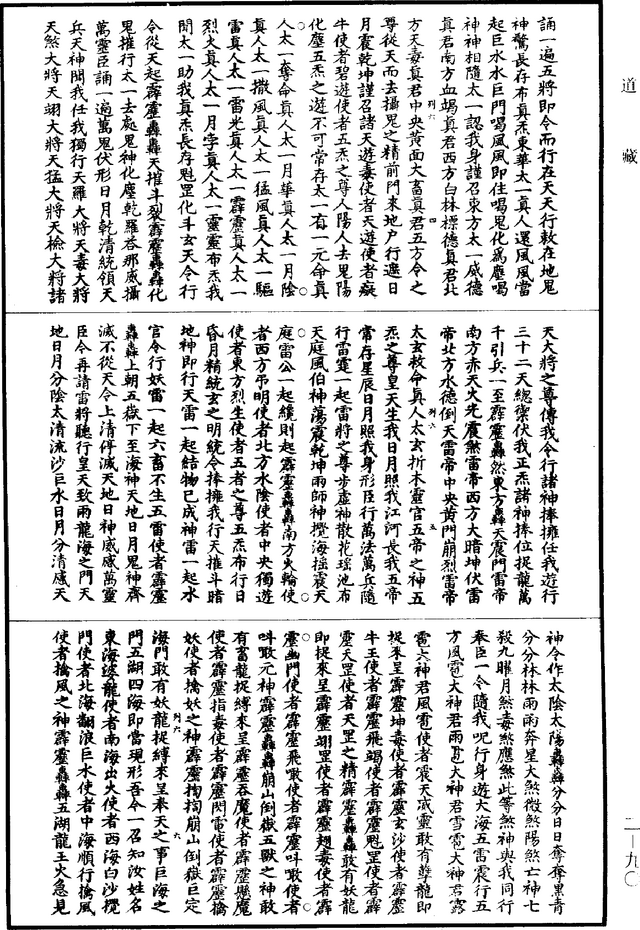 道藏
誦一遍五將即令而行在天天行敕在地鬼
神驚長存布真炁東華太一真人還風風當
起巨水水巨門喝風風即住喝鬼化爲塵喝
神神相隨太一認我身謹召東方太一威德
真君南方血竭真君西方白林標德真君北
方天毒真君中央黄面大畜真君五方令之
列六 四
尊從天而去攝鬼之精前門來地户行遷日
月震乾坤謹召諸天遊毒使者天遊使者癡
牛使者碧遊使者五炁之尊人陽人去鬼陽
化塵五炁之遊不可常存太一有一元命真
人太一奪命真人太一月華真人太一月陰
真人太一撒風真人太一猛風真人太一驅
雷真人太一雷光真人太一霹靂真人太一
烈火真人太一月孛真人太一靈靈布炁我
聞太一助我真炁長存魁罡化斗玄天令行
令從天起霹靂轟轟天摧斗裂霹靂轟轟化
鬼摧行太一去處鬼神化塵乾羅吞那威攝
萬靈臣誦一遍萬鬼伏形日月乾清統領天
兵天神聞我任我獨行天羅大將天毒大將
天煞大將天翊大將天猛大將天檢大將諸
天大將之尊傳我令行諸神捧擁任我遊行
三十二天總禦伏我正炁諸神捧位捉龍萬
千引兵一至霹靂轟然東方轟天震門雷帝
南方赤天火光震煞雷帝西方大暗坤伏雷
帝北方水德倒天雷帝中央黄門崩烈雷帝
太玄敕命真人太玄折木靈官五帝之神五
列六 五
炁之尊皇天生我日月照我江河長我五帝
常存星辰日月照我身形臣行萬法萬兵隨
行雷霆一起雷將之尊步虛神散花瑶池布
天庭風伯神蕩震乾坤雨師神攪海摇震天
庭雷公一起繞則起霹靂轟轟南方火輪使
者西方弔明使者北方水陰使者中央獨遊
使者東方烈生使者五者之尊五炁布行日
昏月精統玄之明統令捧擁我行天摧斗暗
地神即行天雷一起結物已成神雷一起水
官令行妖雷一起六畜不生五雷使者霹靂
轟轟上朝五嶽下至海神天地日月鬼神齊
滅不從天令上清停滅天地日神威感萬靈
臣令再請雷將聽行皇天致雨龍海之門天
地日月分陰太清流沙巨水日月分清感天
神令作太陰太陽轟轟分分日日奪奪黑青
分分林林雨雨奔星大煞微煞陽煞亡神七
殺九曜月煞毒煞應煞此等煞神與我同行
奉臣一令隨我呪行身遊大海五雷震行五
方風雹大神君雨雹大神君雪雹大神君露
雹大神君風雹使者震天威靈敢有孽龍即
捉來呈霹靂坤毒使者霹靂玄沙使者霹靂
牛王使者霹靂飛竭使者霹靂魁罡使者霹
靂天罡使者天罡之精霹靂轟轟敢有妖龍
即捉來呈霹靂翊罡使者霹靂翅毒使者霹
靂幽門使者霹靂飛噉使者霹靂吽噉使者
吽噉元神霹靂轟轟崩山倒嶽五獸之神敢
有畜龍捉縛來呈霹靂吞魔使者霹靂懸魔
使者霹靂指毒使者霹靂閃電使者霹靂擒
妖使者擒妖之神霹靂掏掏崩山倒嶽巨定
列六 六
海門敢有妖龍捉縛來呈奉天之事巨海之
門五湖四海即當現形吾令一召知汝姓名
東海逡龍使者南海出火使者西海白沙攪
門使者北海翻浪巨水使者中海順行擒風
使者擒風之神霹靂轟轟五湖龍王火急見
二—九〇